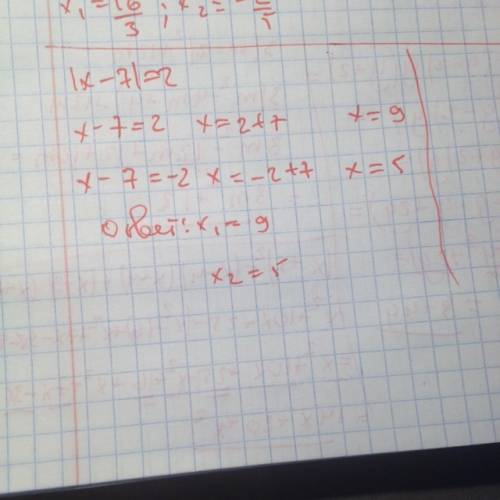 x₁ = 16/3 ; x₂ =
|x-7|=2
x-7=2 x=2+7 x=9
x-7=-2 x=-2+7 x=5
Ответ: x₁=9
x₂=5